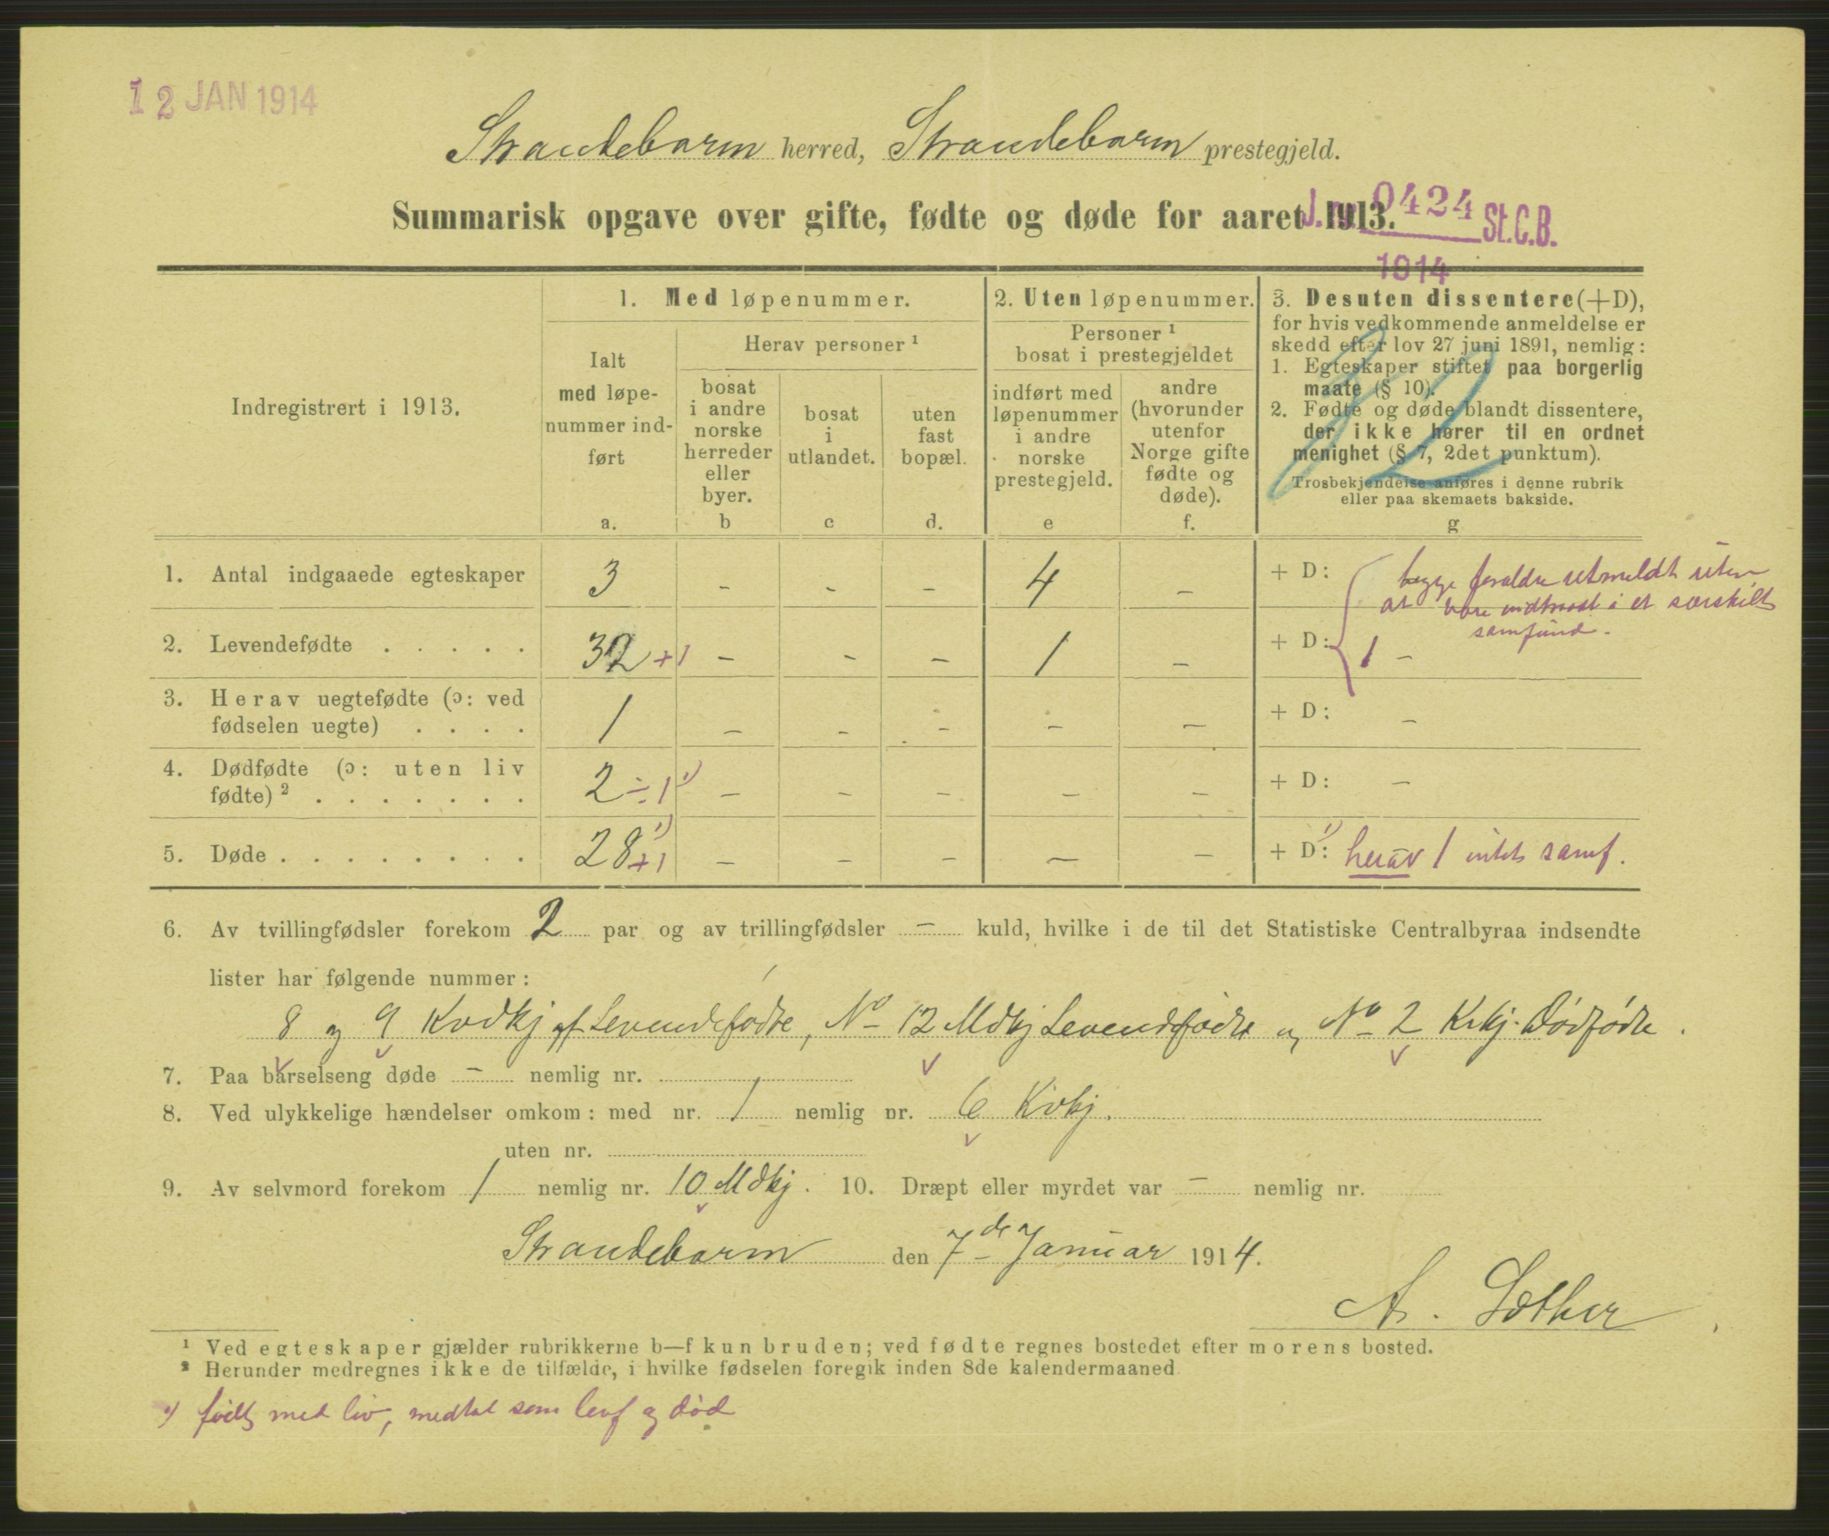 12 JAN 1914
Strandebarm herred, Strandebarm prestegjeld.
Summarisk opgave over gifte, fødte og døde for aaret 1913.
J. nr. 0424 St.C.B.
1914
Indregistrert i 1913.
1. Med løpenummer.
Ialt
med løpe-
nummer ind-
ført
a.
Herav personer ¹
bosat
i andre
norske
herreder
eller
byer.
b
bosat
i
utlandet.
c
uten
fast
bopæl.
d.
2. Uten løpenummer.
Personer ¹
bosat i prestegjeldet
indført med
løpenummer
i andre
norske
prestegjeld.
e
andre
(hvorunder
utenfor
Norge gifte
fødte og
døde).
f.
3. Desuten dissentere (+D),
for hvis vedkommende anmeldelse er
skedd efter lov 27 juni 1891, nemlig:
1. Egteskaper stiftet paa borgerlig
maate (§ 10).
2. Fødte og døde blandt dissentere,
der ikke hører til en ordnet
menighet (§ 7, 2det punktum).
Trosbekjendelse anføres i denne rubrik
eller paa skemaets bakside.
g
12
1. Antal indgaaede egteskaper 3 – – – 4 – + D:
begge foreldre utmeldt uten
at være indtraadt i et særskilt
samfund.
2. Levendefødte . . . . . 32 +1 – – – 1 – + D: 1 –
3. Herav uegtefødte (ɔ: ved
fødselen uegte) . . . . 1 – – – – – + D: –
4. Dødfødte (ɔ: uten liv
fødte) ² . . . . . . . 2 ÷1 ¹) – – – – – + D: –
5. Døde . . . . . . . . . 28 +1 ¹) – – – – – + D: ¹) herav 1 intet samf.
6. Av tvillingfødsler forekom 2 par og av trillingfødsler – kuld, hvilke i de til det Statistiske Centralbyraa indsendte
lister har følgende nummer:
8 og 9 Kvdkj af Levendefødte, No 12 Mdkj Levendefødte og No 2 Kvkj. Dødfødte.
7. Paa barselseng døde – nemlig nr.
8. Ved ulykkelige hændelser omkom: med nr. 1 nemlig nr. 6 Kvkj.
uten nr.
9. Av selvmord forekom 1 nemlig nr. 10 Mdkj. 10. Dræpt eller myrdet var – nemlig nr.
Strandebarm den 7de Januar 1914.
A. Sother
¹ Ved egteskaper gjælder rubrikkerne b—f kun bruden; ved fødte regnes bostedet efter morens bosted.
² Herunder medregnes ikke de tilfælde, i hvilke fødselen foregik inden 8de kalendermaaned
¹) født med liv, medtat som levf og død